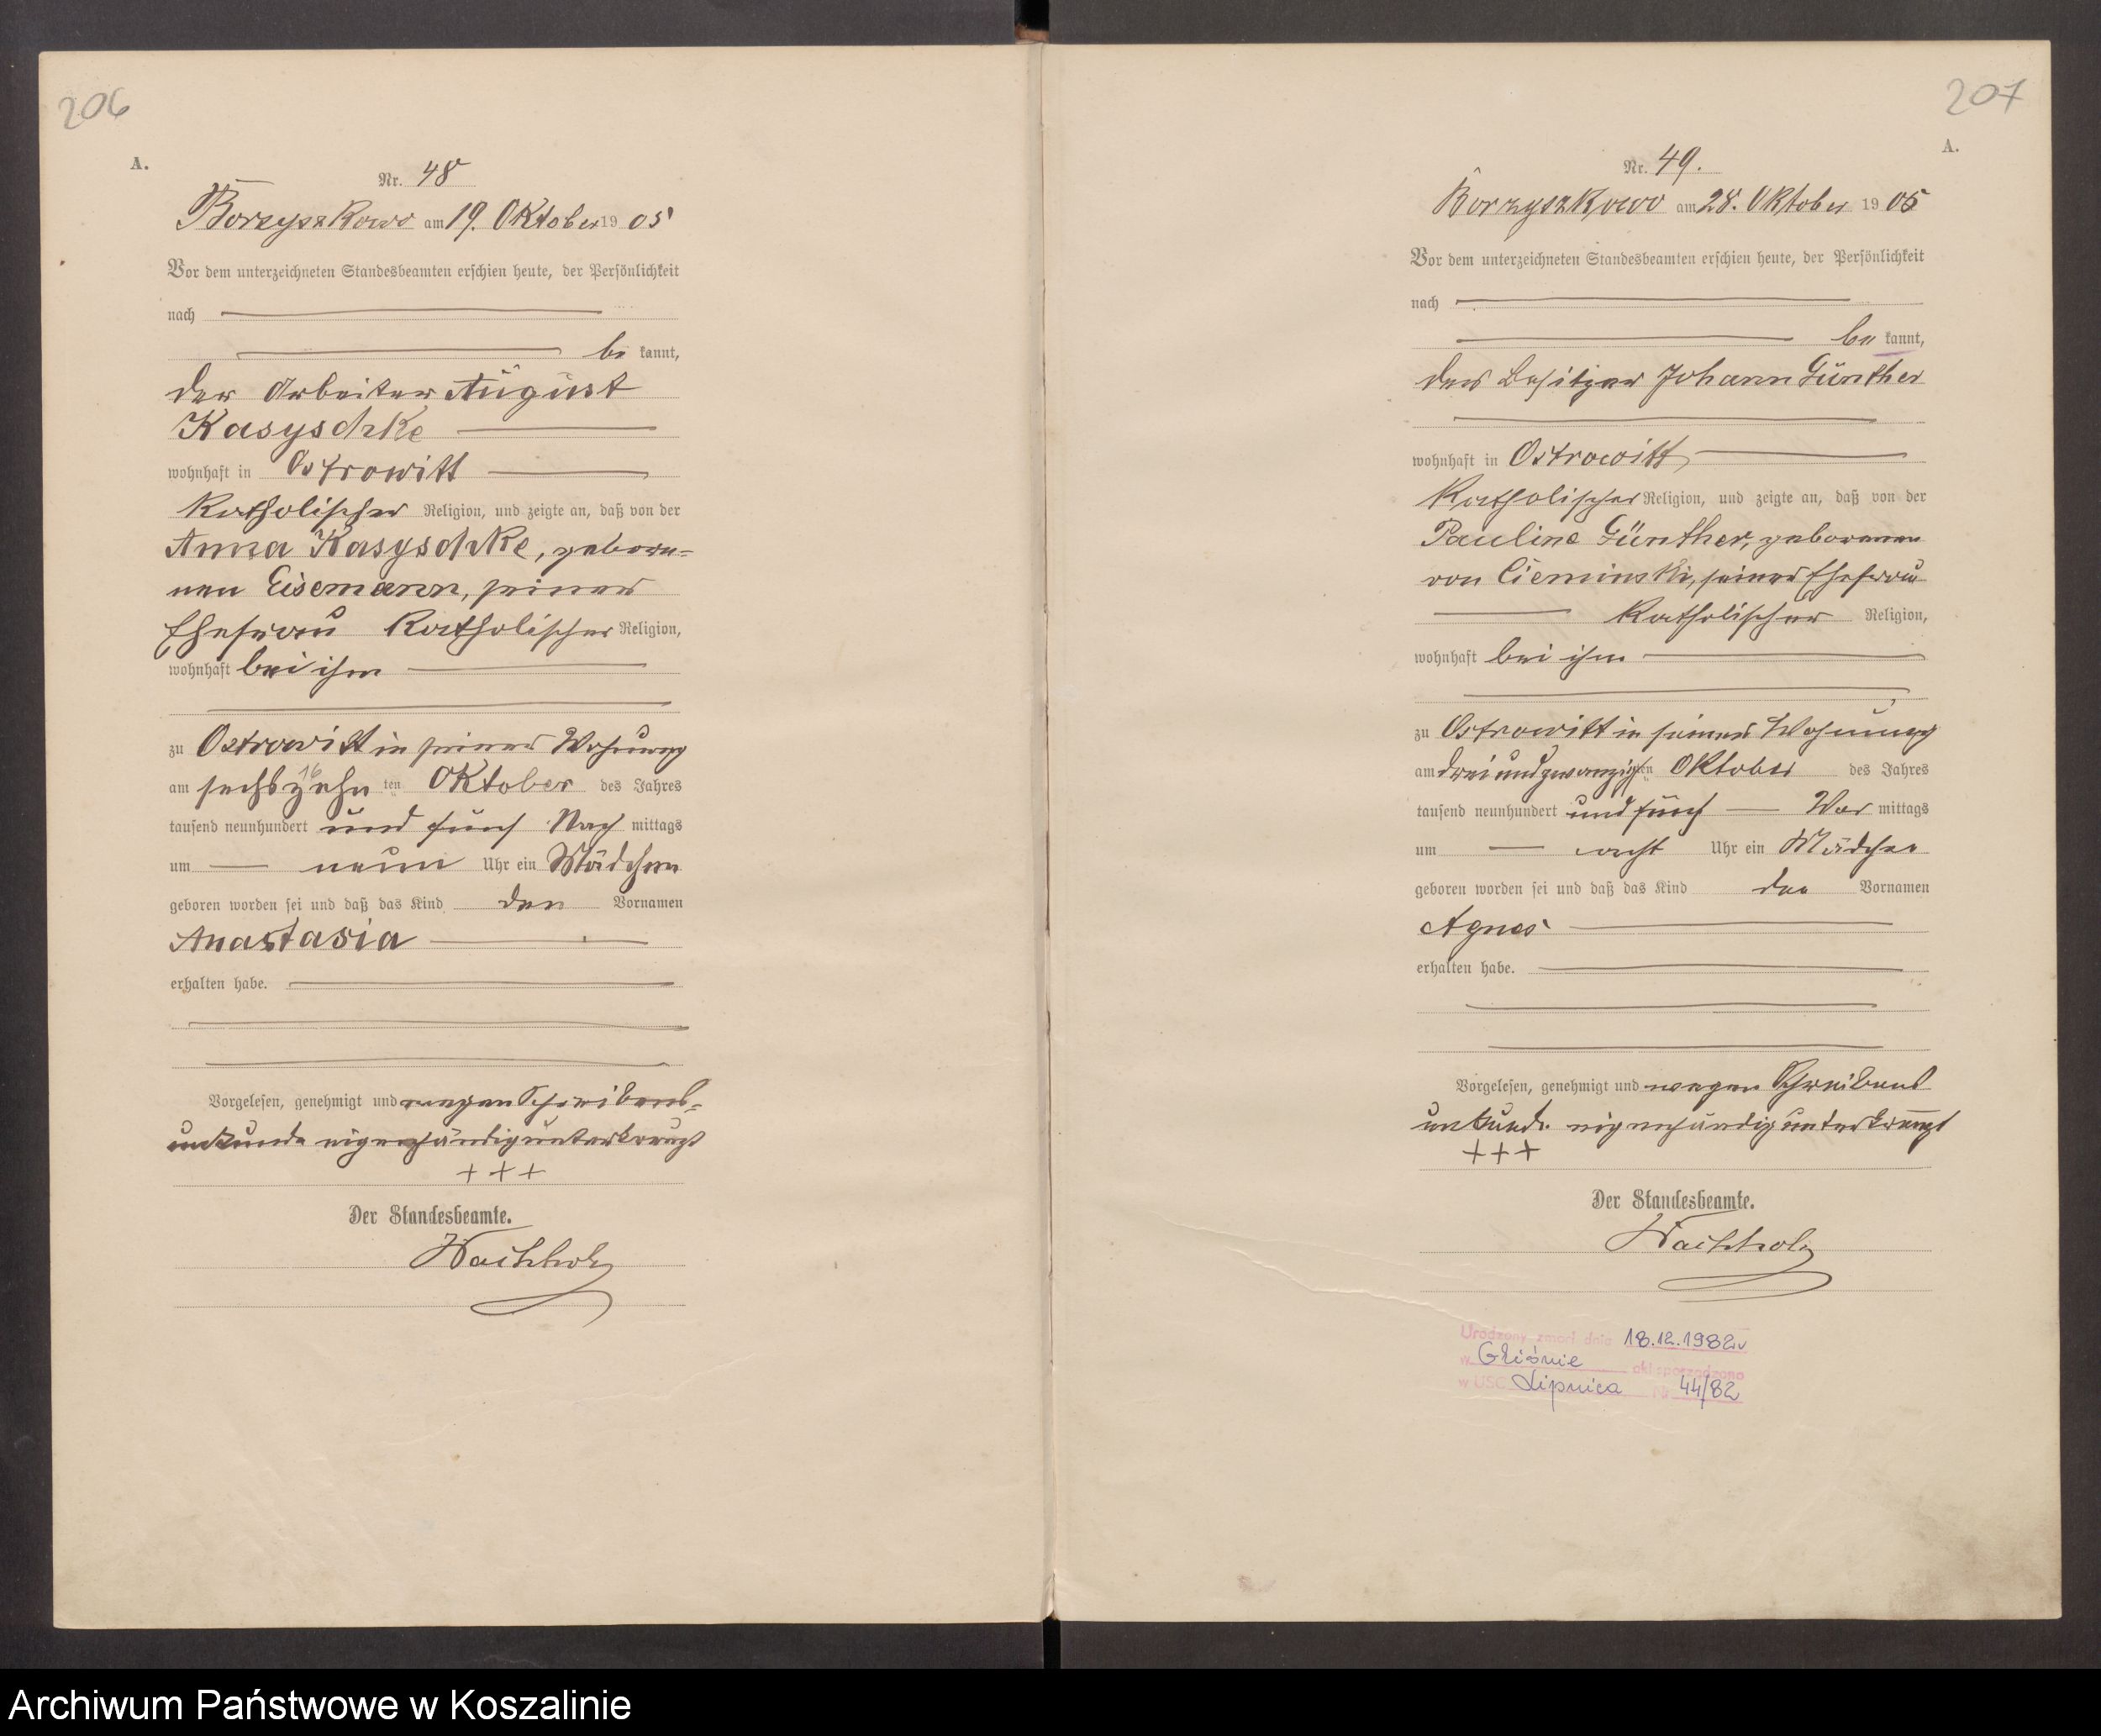 206
A.
Nr. 48
Borzyszkowo am 19. Oktober 1905
Vor dem unterzeichneten Standesbeamten erschien heute, der Persönlichkeit
nach
be kannt,
der Arbeiter August
Kasyschke
wohnhaft in Ostrowitt
katholischer Religion, und zeigte an, daß von der
Anna Kasyschke, gebore-
nen Eisemann, seiner
Ehefrau katholischer Religion,
wohnhaft bei ihm
zu Ostrowitt in seiner Wohnung
am sechszehn ten Oktober des Jahres
16
tausend neunhundert und fünf Nach mittags
um neun Uhr ein Mädchen
geboren worden sei und daß das Kind den Vornamen
Anastasia
erhalten habe.
Vorgelesen, genehmigt und wegen Schreibens-
unkunde eigenhändig unterkreuzt
+++
Der Standesbeamte.
Wachholz
207
A.
Nr. 49.
Borzyszkowo am 28. Oktober 1905
Vor dem unterzeichneten Standesbeamten erschien heute, der Persönlichkeit
nach
be kannt,
der Besitzer Johann Günther
wohnhaft in Ostrowitt
katholischer Religion, und zeigte an, daß von der
Pauline Günther, geborenen
von Cieminski, seiner Ehefrau
katholischer Religion,
wohnhaft bei ihm
zu Ostrowitt in seiner Wohnung
am dreiundzwanzigsten Oktober des Jahres
tausend neunhundert und fünf Vor mittags
um acht Uhr ein Mädchen
geboren worden sei und daß das Kind den Vornamen
Agnes
erhalten habe.
Vorgelesen, genehmigt und wegen Schreibens
unkunde eigenhändig unterkreuzt
+++
Der Standesbeamte.
Wachholz
Urodzony zmarł dnia 18.12.1982r
w Gliśnie akt sporządzono
w USC Lipnica nr 44/82
Archiwum Państwowe w Koszalinie